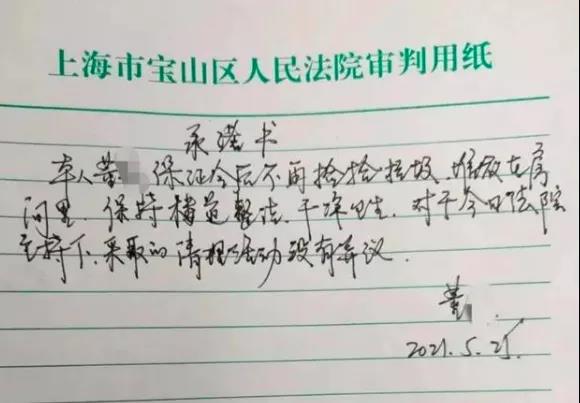 上海市宝山区人民法院审判用纸
承诺书
本人董 保证今后不再捡拾垃圾、堆放在房
间里、保持楼道整洁、干净卫生、对于今日法院
主持下、采取的清理活动没有异议.
董
2021.5.25